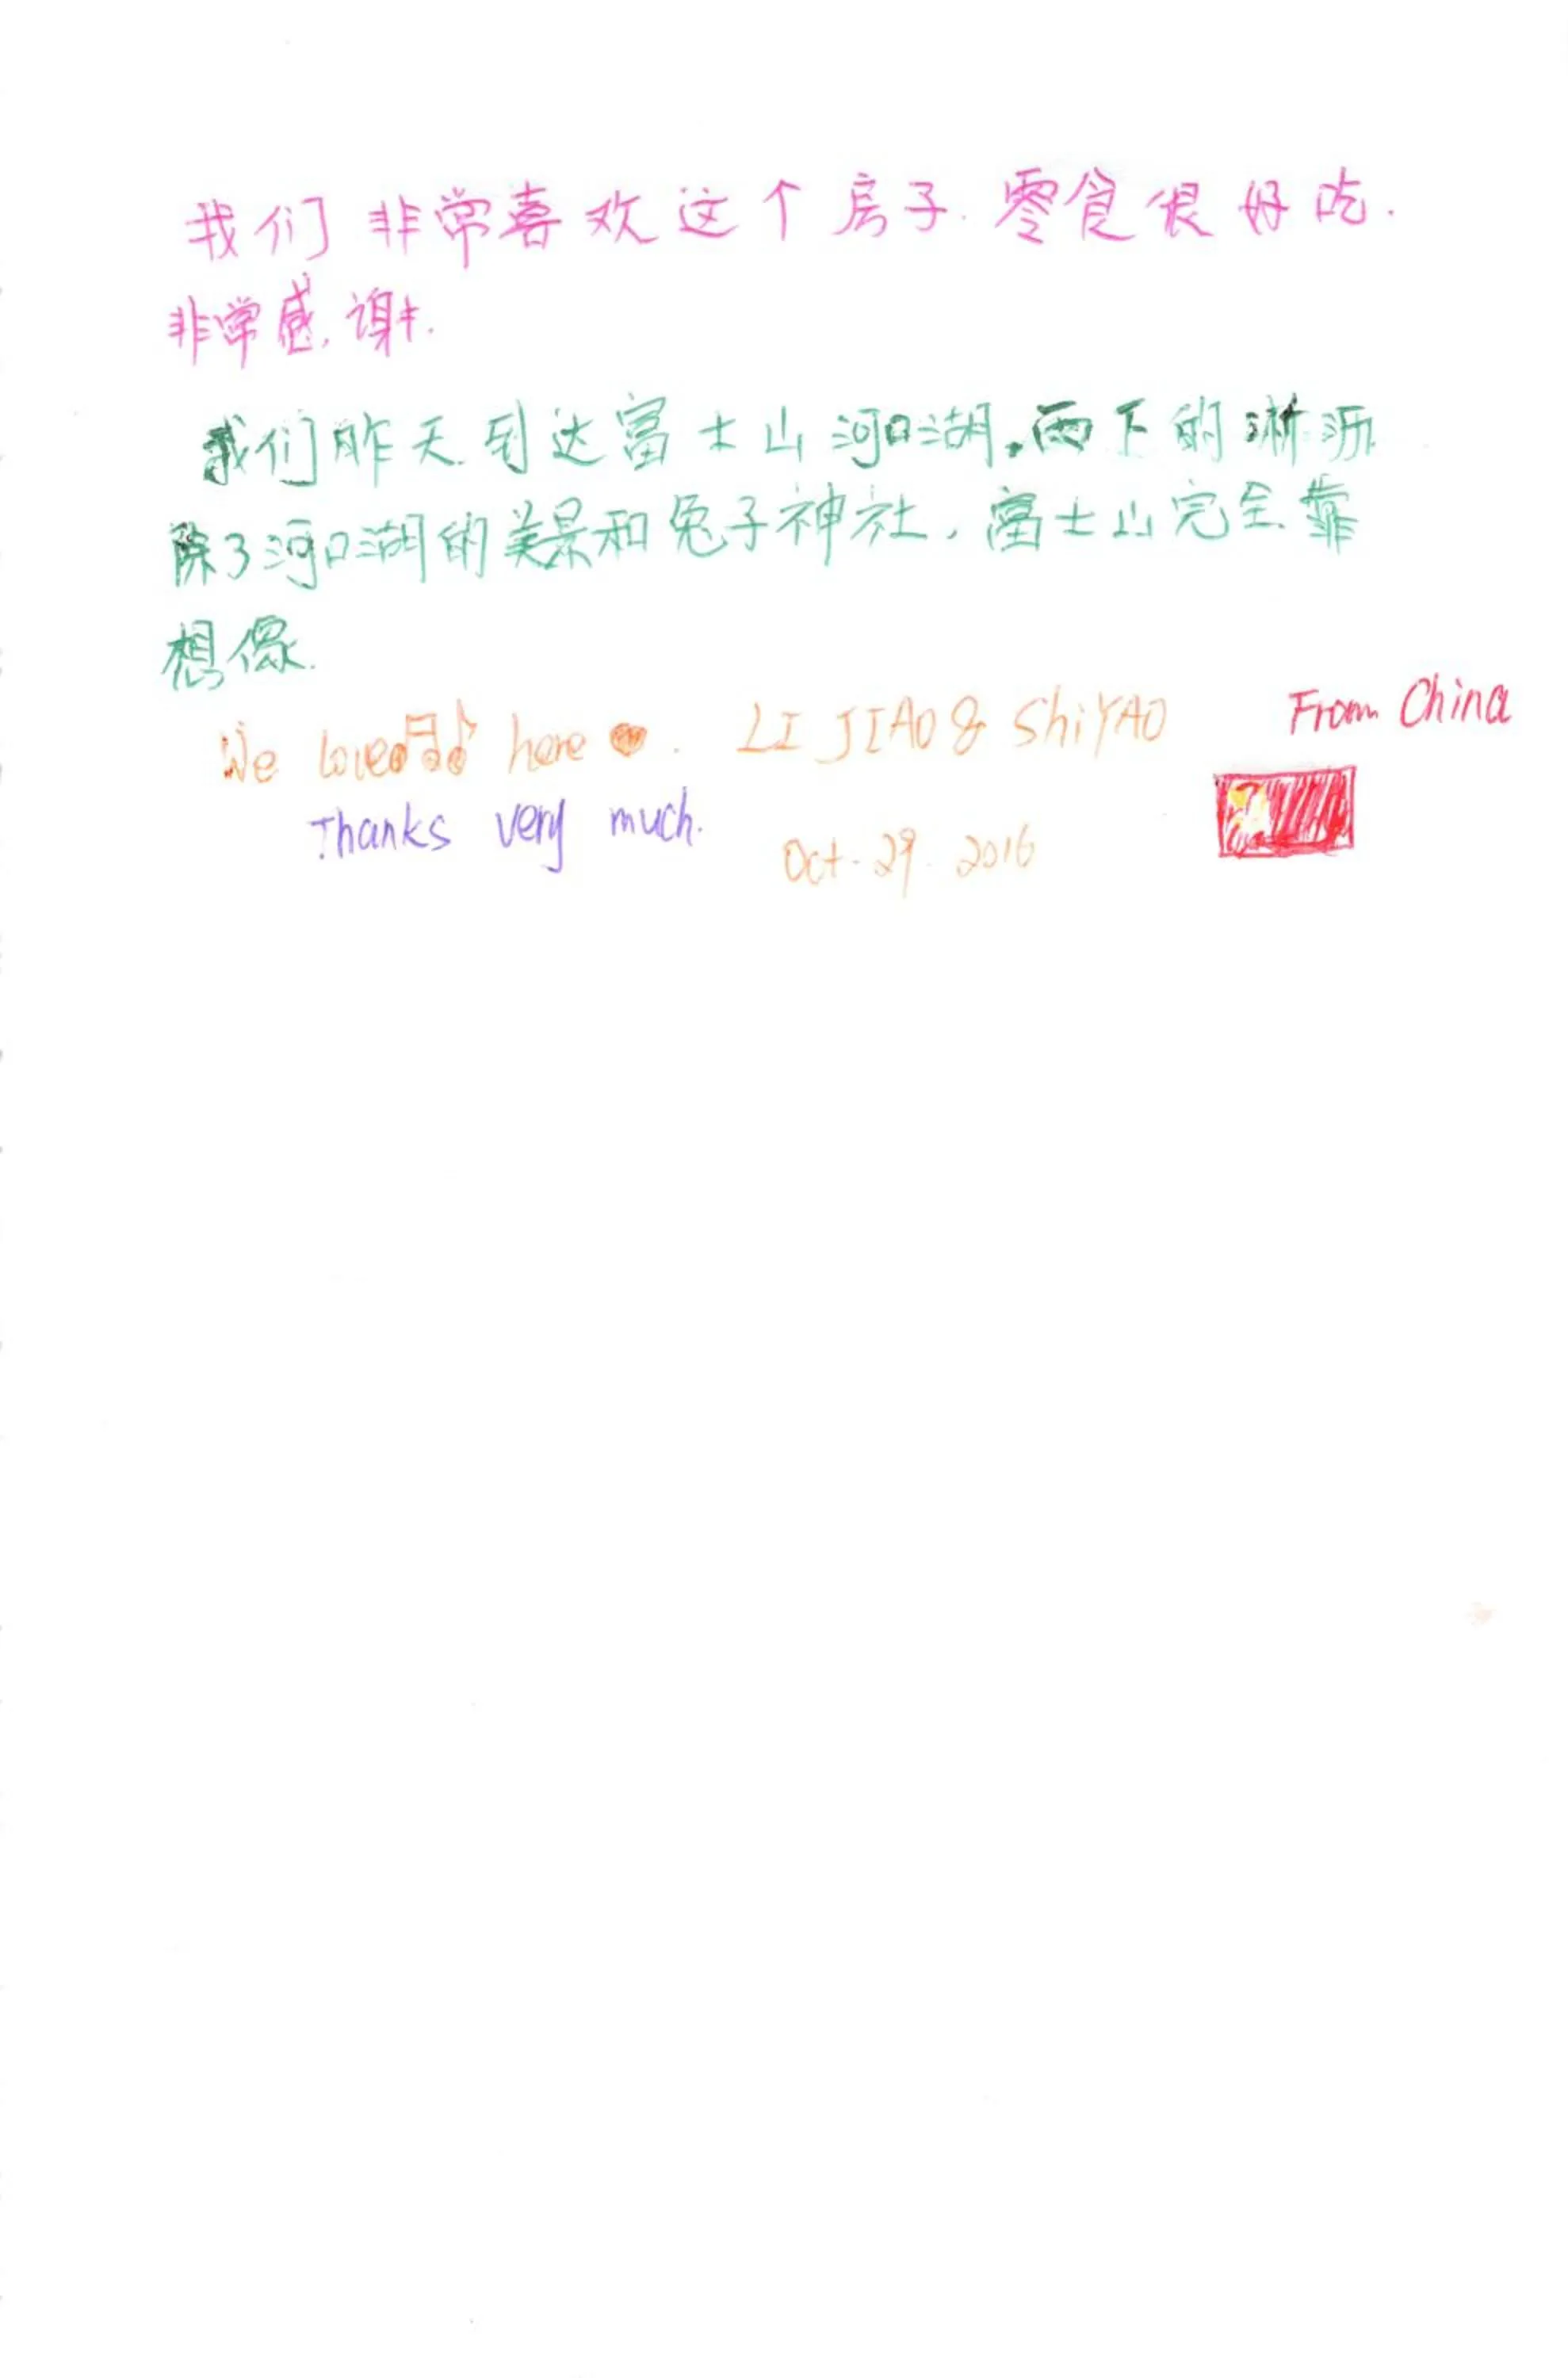 我们非常喜欢这个房子.零食很好吃.
非常感谢.
我们昨天到达富士山河口湖,雨下的淋沥
除了河口湖的美景和兔子神社,富士山完全靠
想像.
We love here. LI JIAO & ShiYAO From China
Thanks very much.
Oct. 29. 2016